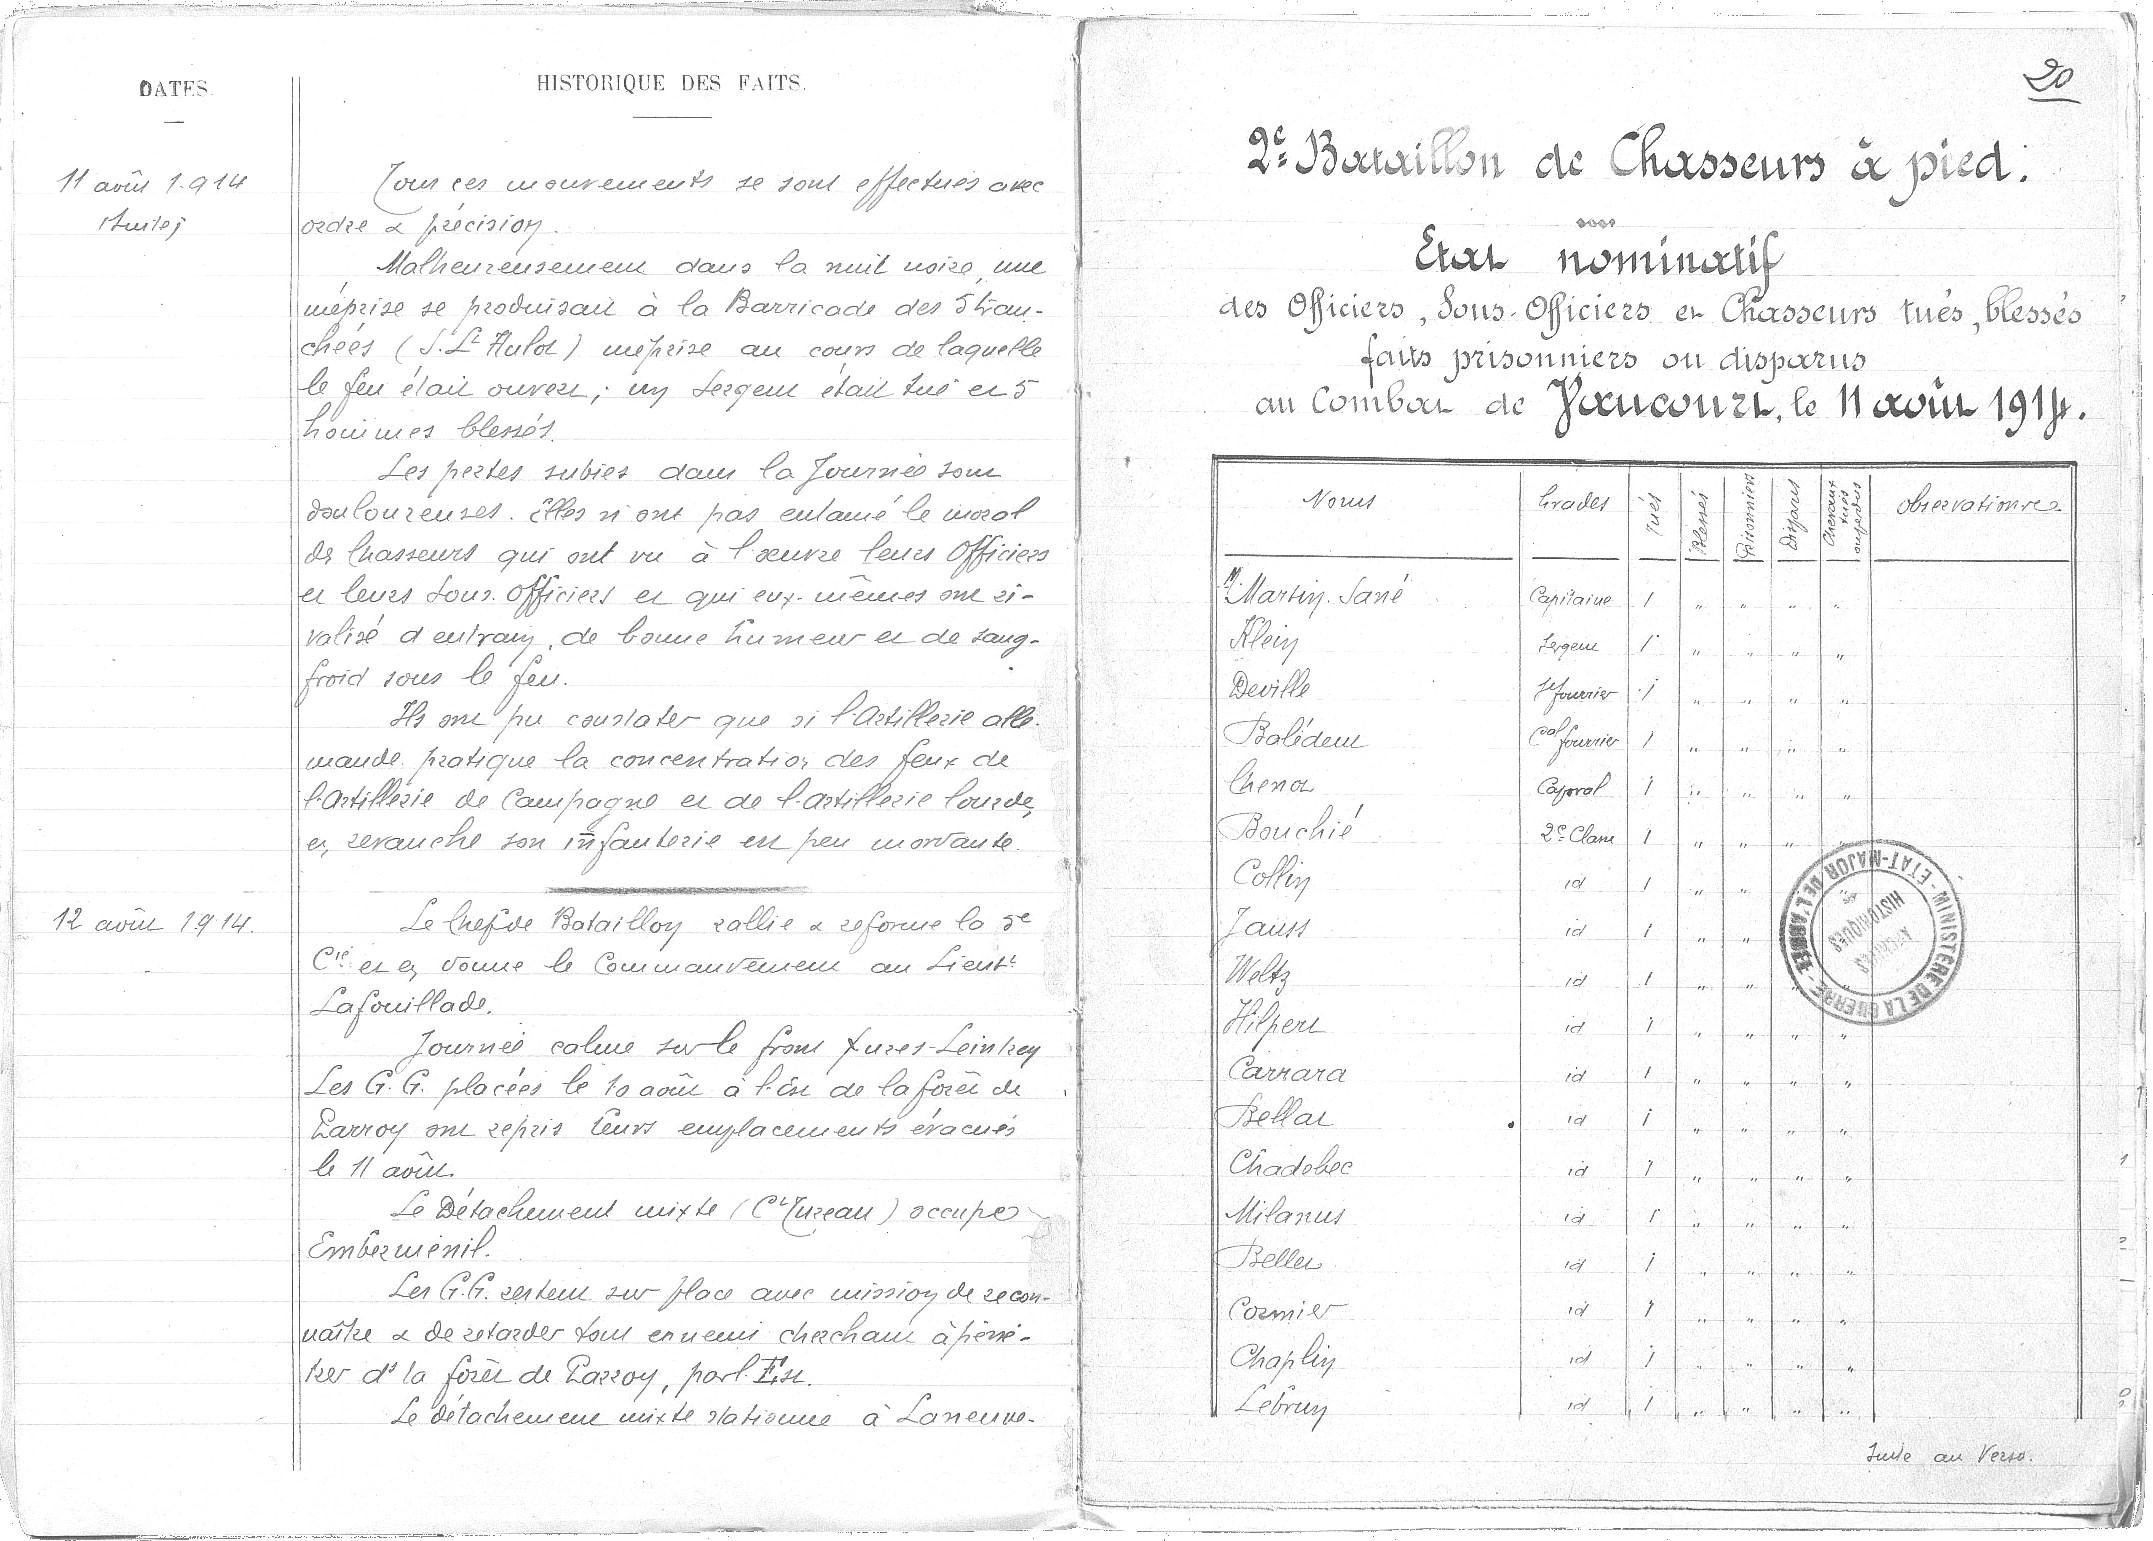 DATES.
HISTORIQUE DES FAITS.
11 août 1914
(suite)
Tous ces mouvements se sont effectués avec
ordre & précision.
Malheureusement dans la nuit noire, une
méprise se produisait à la Barricade des 5 tran-
chées (S. Lt Aulot) méprise au cours de laquelle
le feu était ouvert ; un Sergent était tué et 5
hommes blessés.
Les pertes subies dans la Journée sont
douloureuses. Elles n'ont pas entamé le moral
des Chasseurs qui ont vu à l'œuvre leurs Officiers
et leurs Sous-Officiers et qui eux-mêmes ont ri-
valisé d'entrain, de bonne humeur et de sang-
froid sous le feu.
Ils ont pu constater que si l'Artillerie alle-
mande pratique la concentration des feux de
l'Artillerie de Campagne et de l'artillerie lourde,
en revanche son infanterie est peu mordante.
12 août 1914.
Le Chef de Bataillon rallie & reforme la 5e
Cie et en donne le Commandement au Lieutt
Lafouillade.
Journée calme sur le front Xures-Leintrey
Les G.G. placées le 10 août à l'Est de la forêt de
Parroy ont repris leurs emplacements évacués
le 11 août.
Le Détachement mixte (Ct Tureau) occupe
Emberménil.
Les G.G. restent sur place avec mission de recon-
naître & de retarder tout ennemi cherchant à péné-
trer ds la forêt de Parroy, par l'Est.
Le détachement mixte stationne à Laneuve-
20
2e Bataillon de Chasseurs à pied.
Etat nominatif
des Officiers, Sous-Officiers et Chasseurs tués, blessés
faits prisonniers ou disparus
au Combat de Vaucourt, le 11 août 1914.
Noms Grades Tués Blessés Prisonniers Disparus Chevaux tués ou perdus Observations
M. Martin-Sané Capitaine 1 " " " "
Klein Sergent 1 " " " "
Deville St fourrier 1 " " " "
Balédent Cal fourrier 1 " " " "
Chenot Caporal 1 " " " "
Bouchié 2e Classe 1 " " " "
Collin id 1 " "
Jauss id 1 " "
Weltz id 1 " " " "
Hilpert id 1 " " " "
Carrara id 1 " " " "
Bellat id 1 " " " "
Chadebec id 1 " " " "
Milanus id 1 " " " "
Bellet id 1 " " " "
Cormier id 1 " " " "
Chaplin id 1 " " " "
Lebrun id 1 " " " "
MINISTÈRE DE LA GUERRE - ETAT-MAJOR DE L'ARMÉE
ARCHIVES
HISTORIQUES
Suite au Verso.